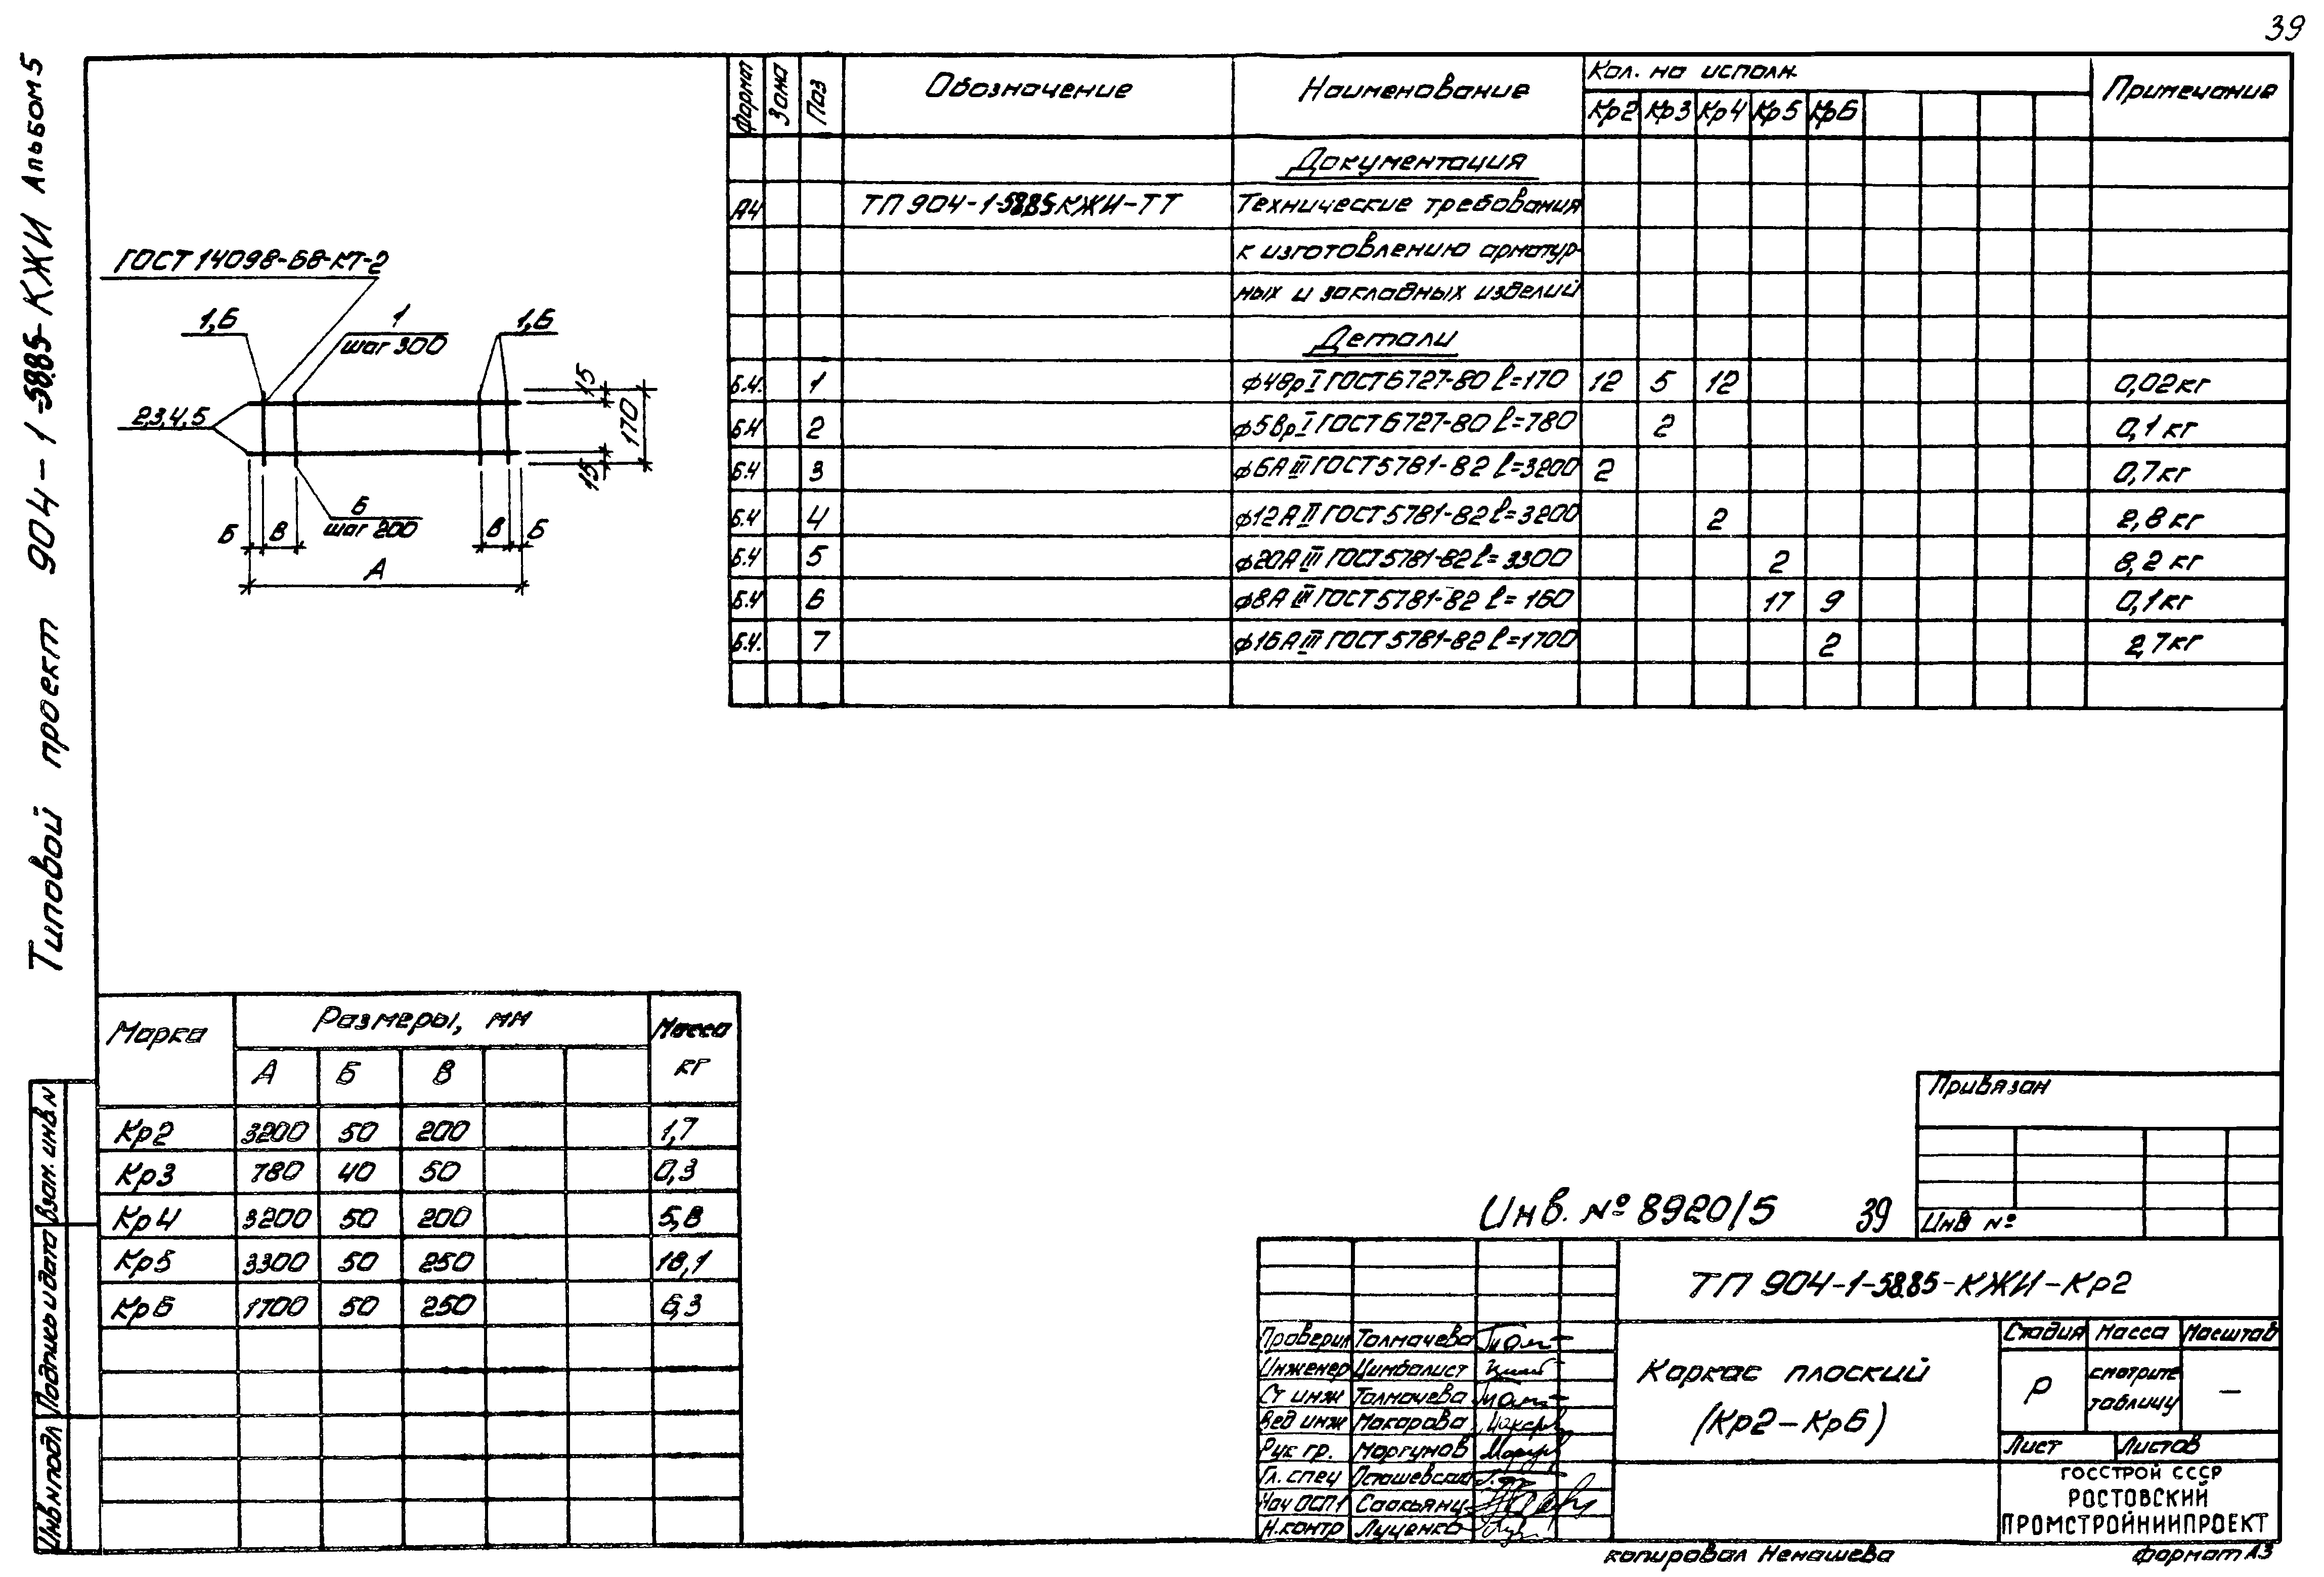 39
Типовой проект 904-1-58.85-КЖИ Альбом 5
ГОСТ 14098-68-КТ-2
1,6
1
шаг 300
1,6
2,3,4,5
15
170
15
6
шаг 200
Б В В Б
А
Формат Зона Поз Обозначение Наименование Кол. на исполн. Примечание
Кр2 Кр3 Кр4 Кр5 Кр6
Документация
А4 ТП 904-1-58.85 КЖИ-ТТ Технические требования
к изготовлению арматур-
ных и закладных изделий
Детали
Б.Ч. 1 ф4Вр I ГОСТ 6727-80 l=170 12 5 12 0,02 кг
Б.Ч 2 ф5Вр I ГОСТ 6727-80 l=780 2 0,1 кг
Б.Ч 3 ф6А III ГОСТ 5781-82 l=3200 2 0,7 кг
Б.Ч 4 ф12А II ГОСТ 5781-82 l=3200 2 2,8 кг
Б.Ч 5 ф20А III ГОСТ 5781-82 l=3300 2 8,2 кг
Б.Ч 6 ф8А III ГОСТ 5781-82 l=160 17 9 0,1 кг
Б.Ч. 7 ф16А III ГОСТ 5781-82 l=1700 2 2,7 кг
Марка Размеры, мм Масса
кг
А Б В
Кр2 3200 50 200 1,7
Кр3 780 40 50 0,3
Кр4 3200 50 200 5,8
Кр5 3300 50 250 18,1
Кр6 1700 50 250 6,3
Взам. инв N
Подпись и дата
Инв N подл
Привязан
Инв №
Инв. № 8920/5 39
ТП 904-1-58.85-КЖИ-Кр2
Проверил Толмачева
Инженер Цимбалист
Ст инж Толмачева
Вед инж Макарова
Рук гр. Моргунов
Гл. спец Осташевский
Нач ОСП1 Саакьянц
Н.контр Луценко
Каркас плоский
(Кр2-Кр6)
Стадия Масса Масштаб
Р смотрите
таблицу —
Лист Листов
ГОССТРОЙ СССР
РОСТОВСКИЙ
ПРОМСТРОЙНИИПРОЕКТ
копировал Ненашева формат А3